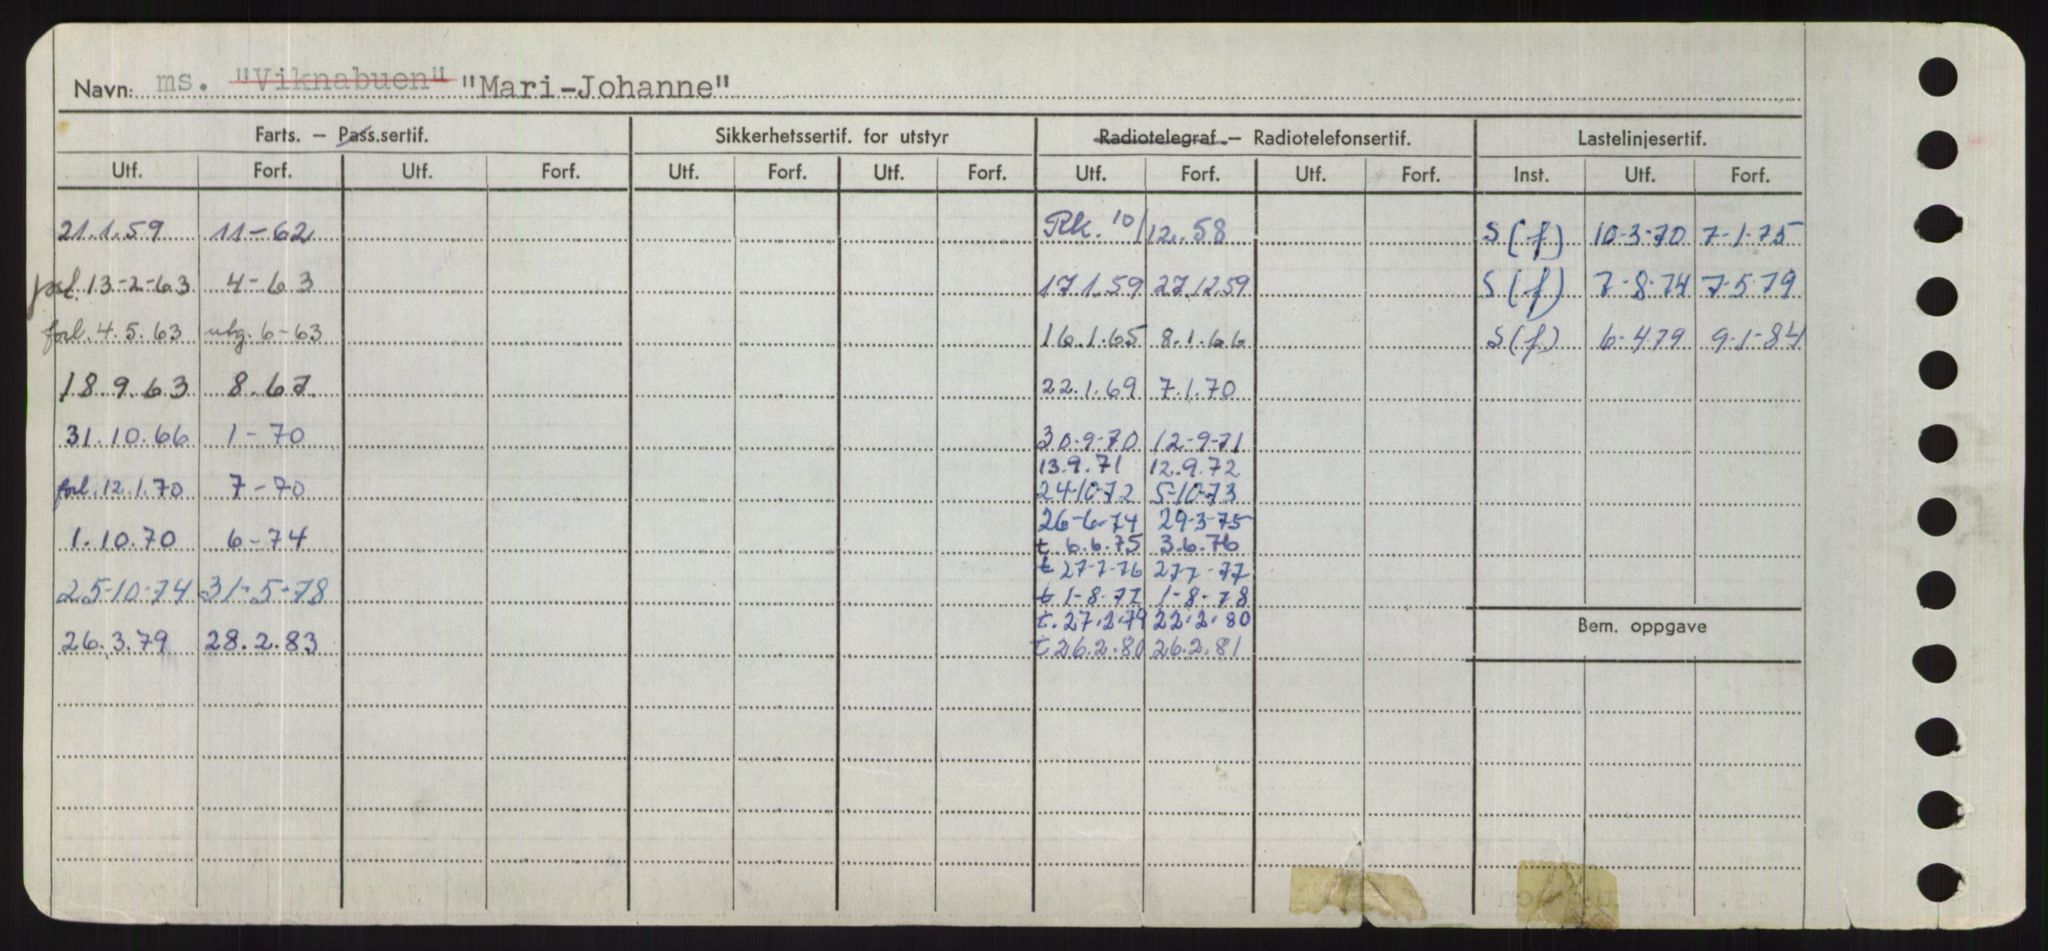 Navn: ms. "Viknabuen" "Mari-Johanne"
Farts. — Pass.sertif. Sikkerhetssertif. for utstyr Radiotelegraf. — Radiotelefonsertif. Lastelinjesertif.
Utf. Forf. Utf. Forf. Utf. Forf. Utf. Forf. Utf. Forf. Utf. Forf. Inst. Utf. Forf.
21.1.59 11-62 Rk. 10/12.58 S(f) 10-3-70 7-1-75
forl. 13-2-63 4-63 17.1.59 27.12.59 S(f) 7-8-74 7-5-79
forl. 4.5.63 utg. 6-63 16.1.65 8.1.66 S(f) 6-4-79 9-1-84
18.9.63 8.67 22.1.69 7.1.70
31.10.66 1-70 30-9-70 12-9-71
13.9.71 12.9.72
forl. 12.1.70 7-70 24-10-72 5-10-73
26-6-74 29-3-75
1.10.70 6-74 t. 6.6.75 3.6.76
t 27-7-76 277-77
25-10-74 31-5-78 t 1-8-77 1-8-78
t. 27.2.79 22.2.80
26.3.79 28.2.83 t 26.2.80 26.2.81
Bem. oppgave